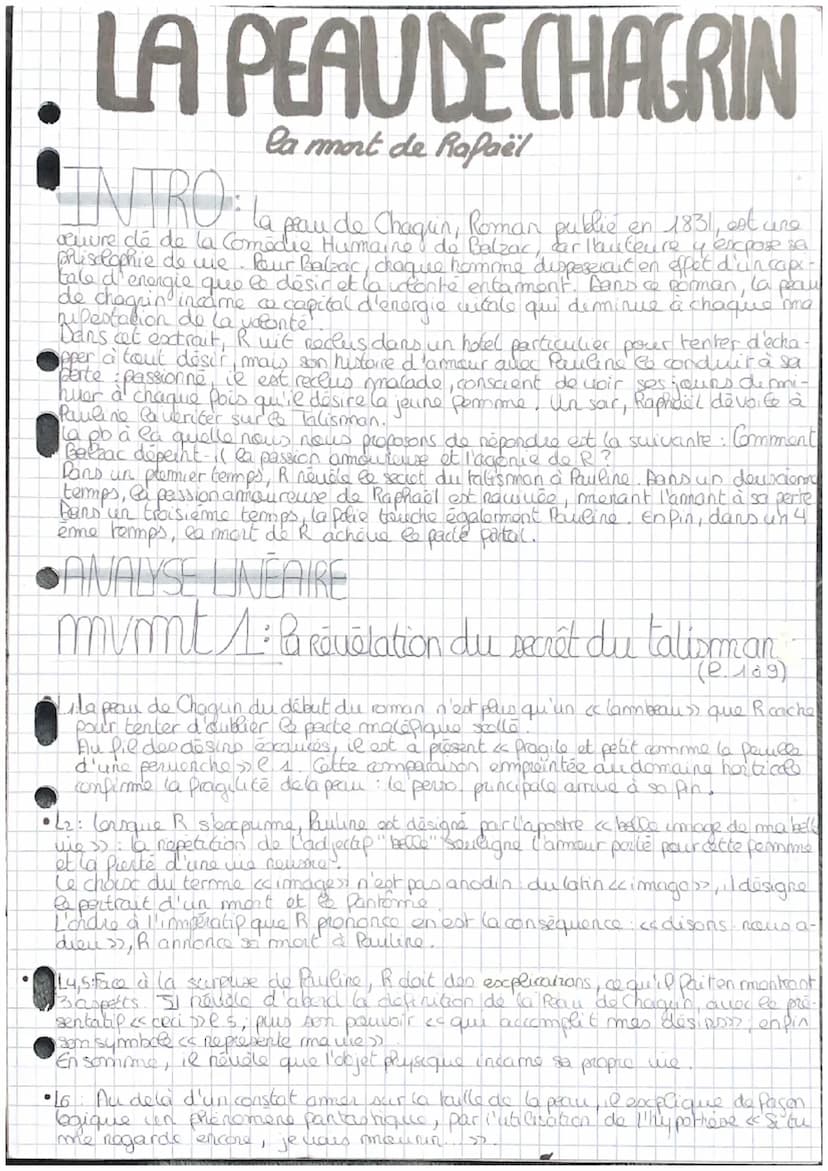 LA PEAU DE CHAGRIN
la mort de Rafaël
INTRO : la peau de Chagrin, Roman publié en 1831, est une
œuvre clé de la Comédie Humaine de Balzac, car l'auteure y expose sa
philosophie de vie. Pour Balzac, chaque homme disposerait en effet d'un capi-
tale d'énergie que le désir et la volonté entament. Dans ce roman, la peau
de chagrin incarne ce capital d'énergie vitale qui diminue à chaque ma
nifestation de la volonté.
Dans cet extrait, R vit reclus dans un hotel particulier pour tenter d'écha-
pper à tout désir, mais son histoire d'amour avec Pauline le conduit à sa
perte : passionné, il est reclus malade, conscient de voir ses jours dimi-
nuer à chaque fois qu'il désire la jeune femme. Un soir, Raphaël dévoile à
Pauline la vériter sur le Talisman.
la pb à la quelle nous nous proposons de répondre est la suivante : Comment
Balzac dépeint-il la passion amoureuse et l'agonie de R ?
Dans un premier temps, R révèle le secret du talisman à Pauline. Dans un deuxième
temps, la passion amoureuse de Raphaël est ravivée, menant l'amant à sa perte
Dans un troisième temps, la folie touche également Pauline. Enfin, dans un 4
ème temps, la mort de R achève le pacte fatal.
ANALYSE LINÉAIRE
mvmt 1 : la Révélation du secrêt du talisman
(l. 1 à 9)
L1. la peau de Chagrin du début du roman n'est plus qu'un « lambeau » que R cache
pour tenter d'oublier le pacte maléfique scellé.
Au fil des désirs écoulés, il est à présent « fragile et petit comme la feuille
d'une pervenche » l 1. Cette comparaison empreintée au domaine horticole
confirme la fragilité de la peau : le perso. principale arrive à sa fin.
• L2 : lorsque R s'exprime, Pauline est désigné par l'apostre « belle image de ma belle
vie » : la répétition de l'adjectif "belle" souligne l'amour porté pour cette femme
et la fierté d'une vie
Le choix du terme « image » n'est pas anodin : du latin « imago », il désigne
le portrait d'un mort et le fantôme.
L'ordre à l'impératif que R prononce en est la conséquence : « disons-nous a-
dieu », R annonce sa mort à Pauline.
• L4,5 : Face à la surprise de Pauline, R doit des explications, ce qu'il fait en montrant
3 aspects. Il révèle d'abord la définition de la Peau de Chagrin, avec le pré-
sentatif « ceci » l 5 ; puis son pouvoir « qui accomplit mes désirs », enfin
son symbole « représente ma vie »
En somme, il révèle que l'objet physique incarne sa propre vie.
• L6 : Au delà d'un constat amer sur la taille de la peau, il explique de façon
logique un phénomène fantastique, par l'utilisation de l'hypothèse « Si tu
me regarde encore, je vais mourir... ».